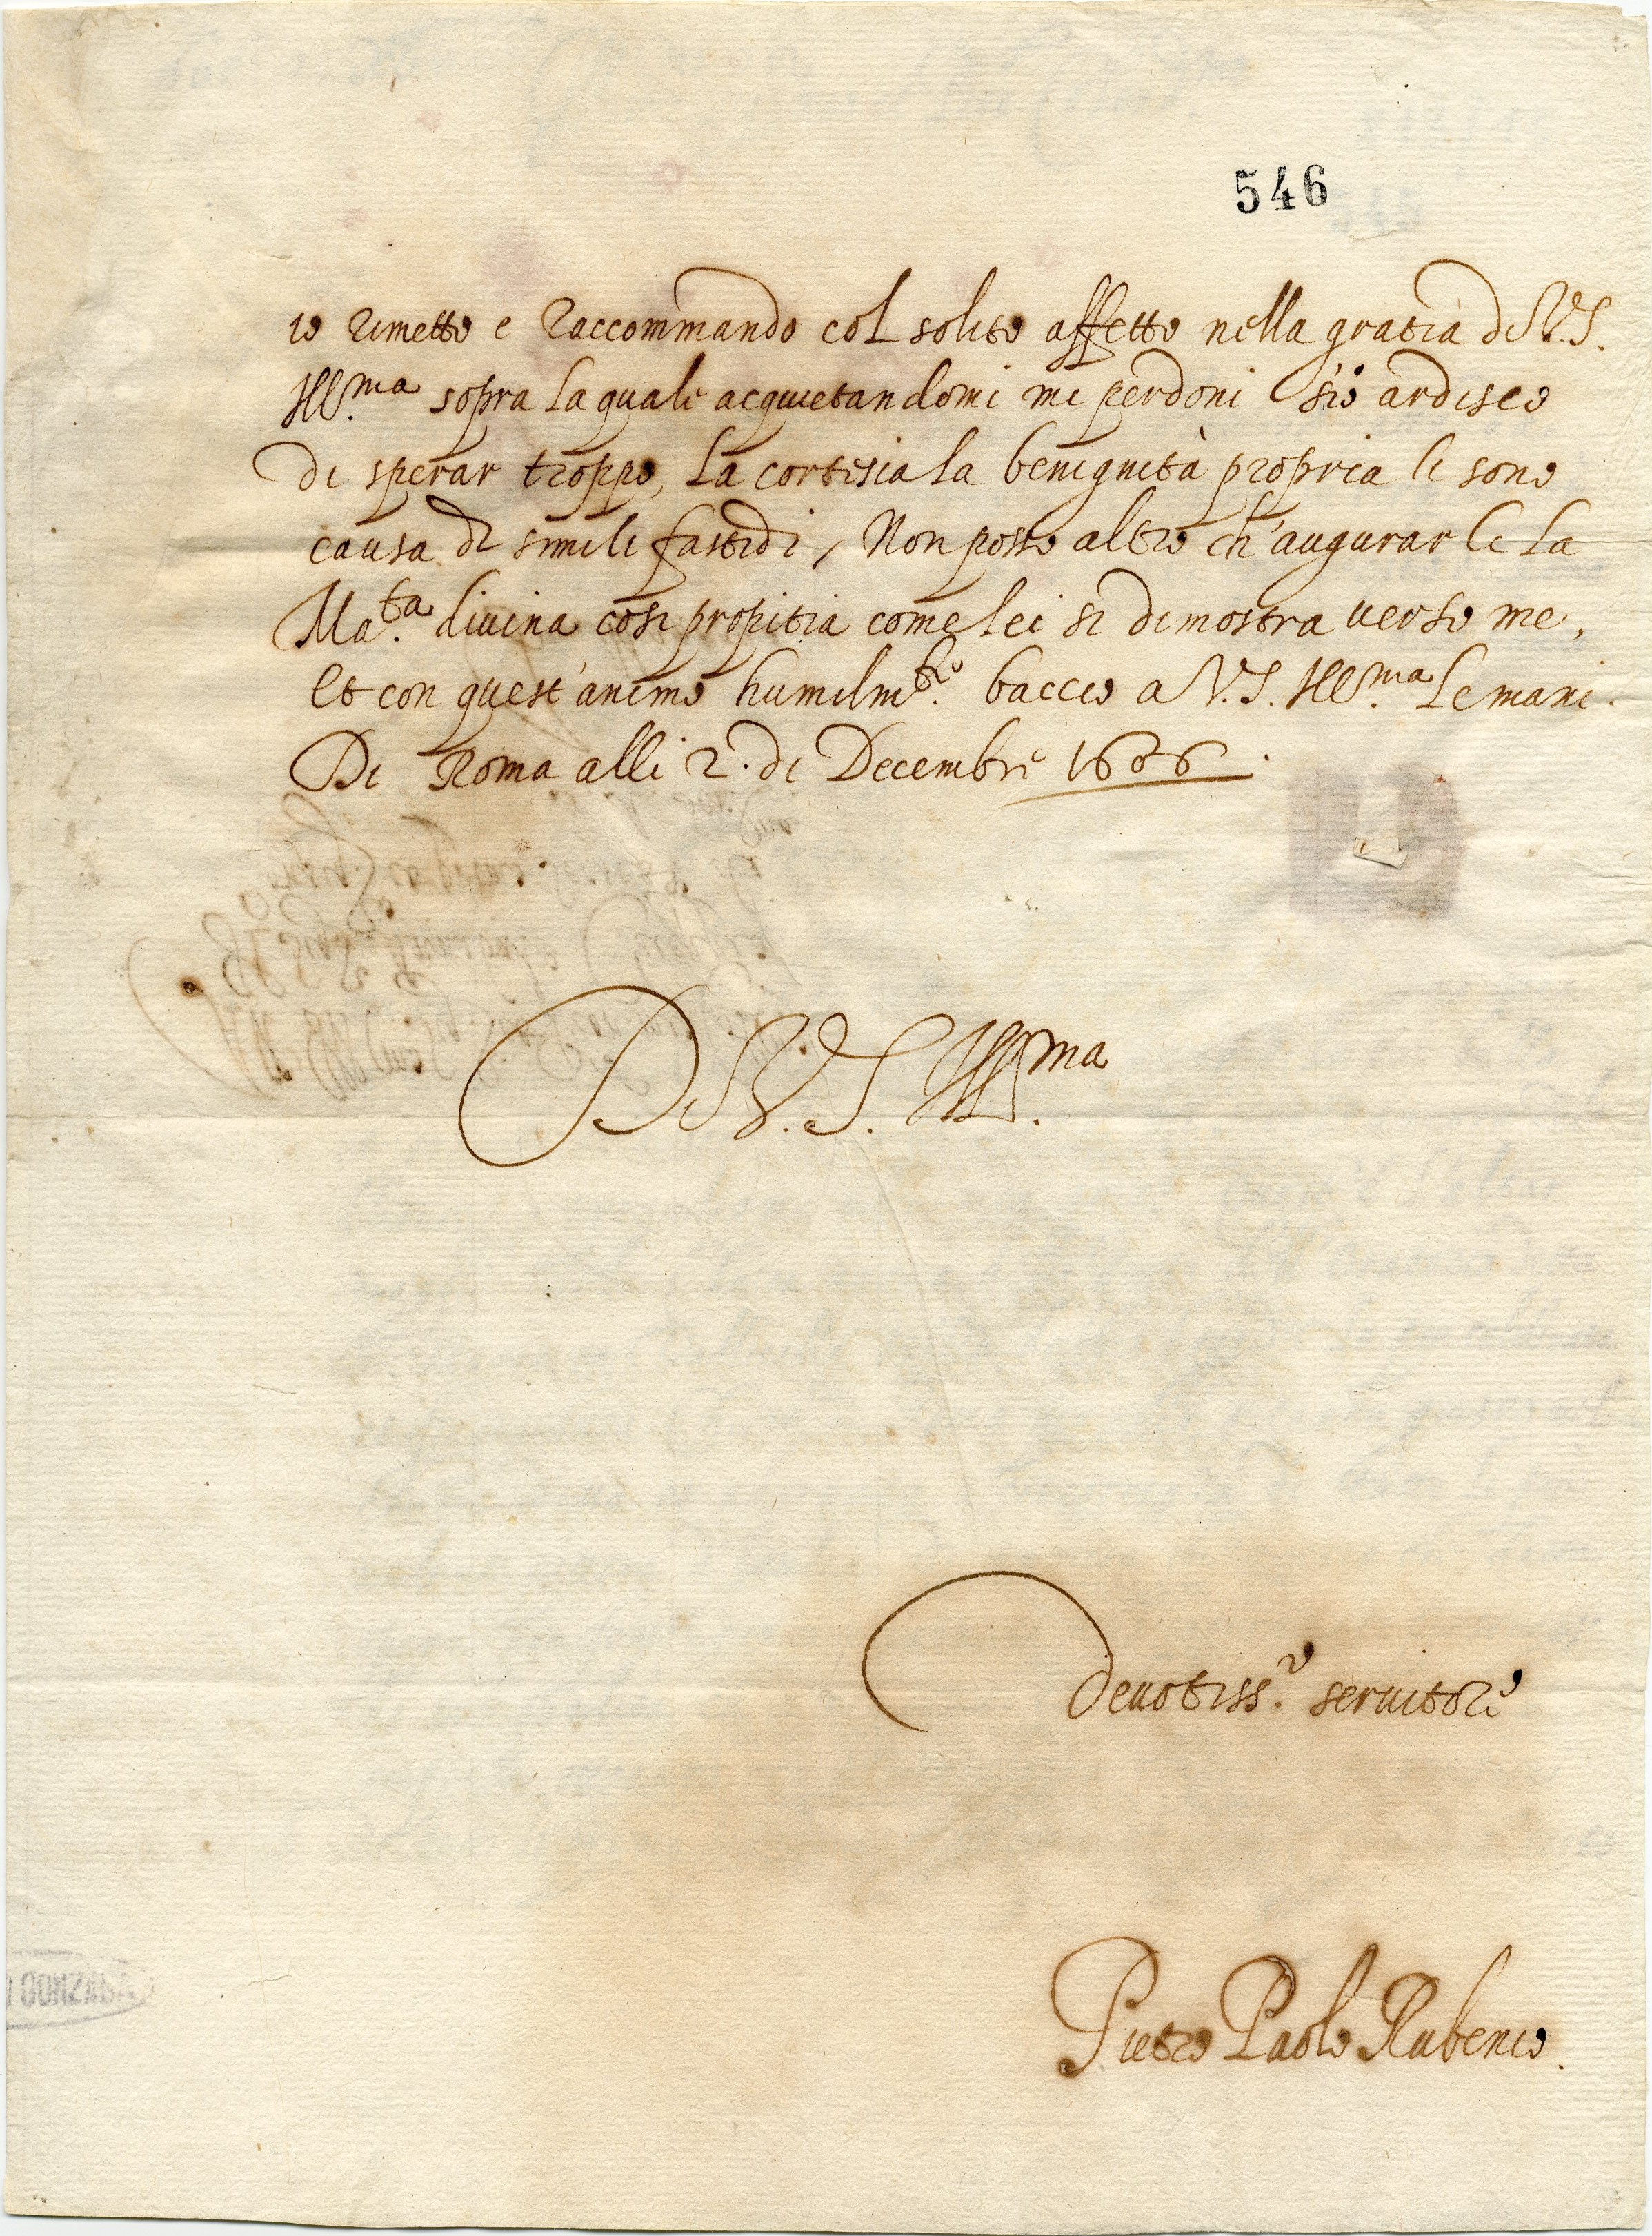 546
io rimetto e raccommando col solito affetto nella gratia di V.S.
Ill.ma sopra la quale acquietandomi mi perdoni s'io ardisco
di sperar troppo, la cortesia la benignità propria li sono
causa di simili fastidi, Non posso altro ch'augurarli la
Ma.ta divina cosi propitia come lei si dimostra verso me,
Et con quest'animo humilm.te baccio a V.S. Ill.ma le mani.
Di Roma alli 2. di Decembre 1606.
Di V.S. Ill.ma
Devotiss.o servitore
Pietro Paolo Rubenio.
GONZAGA